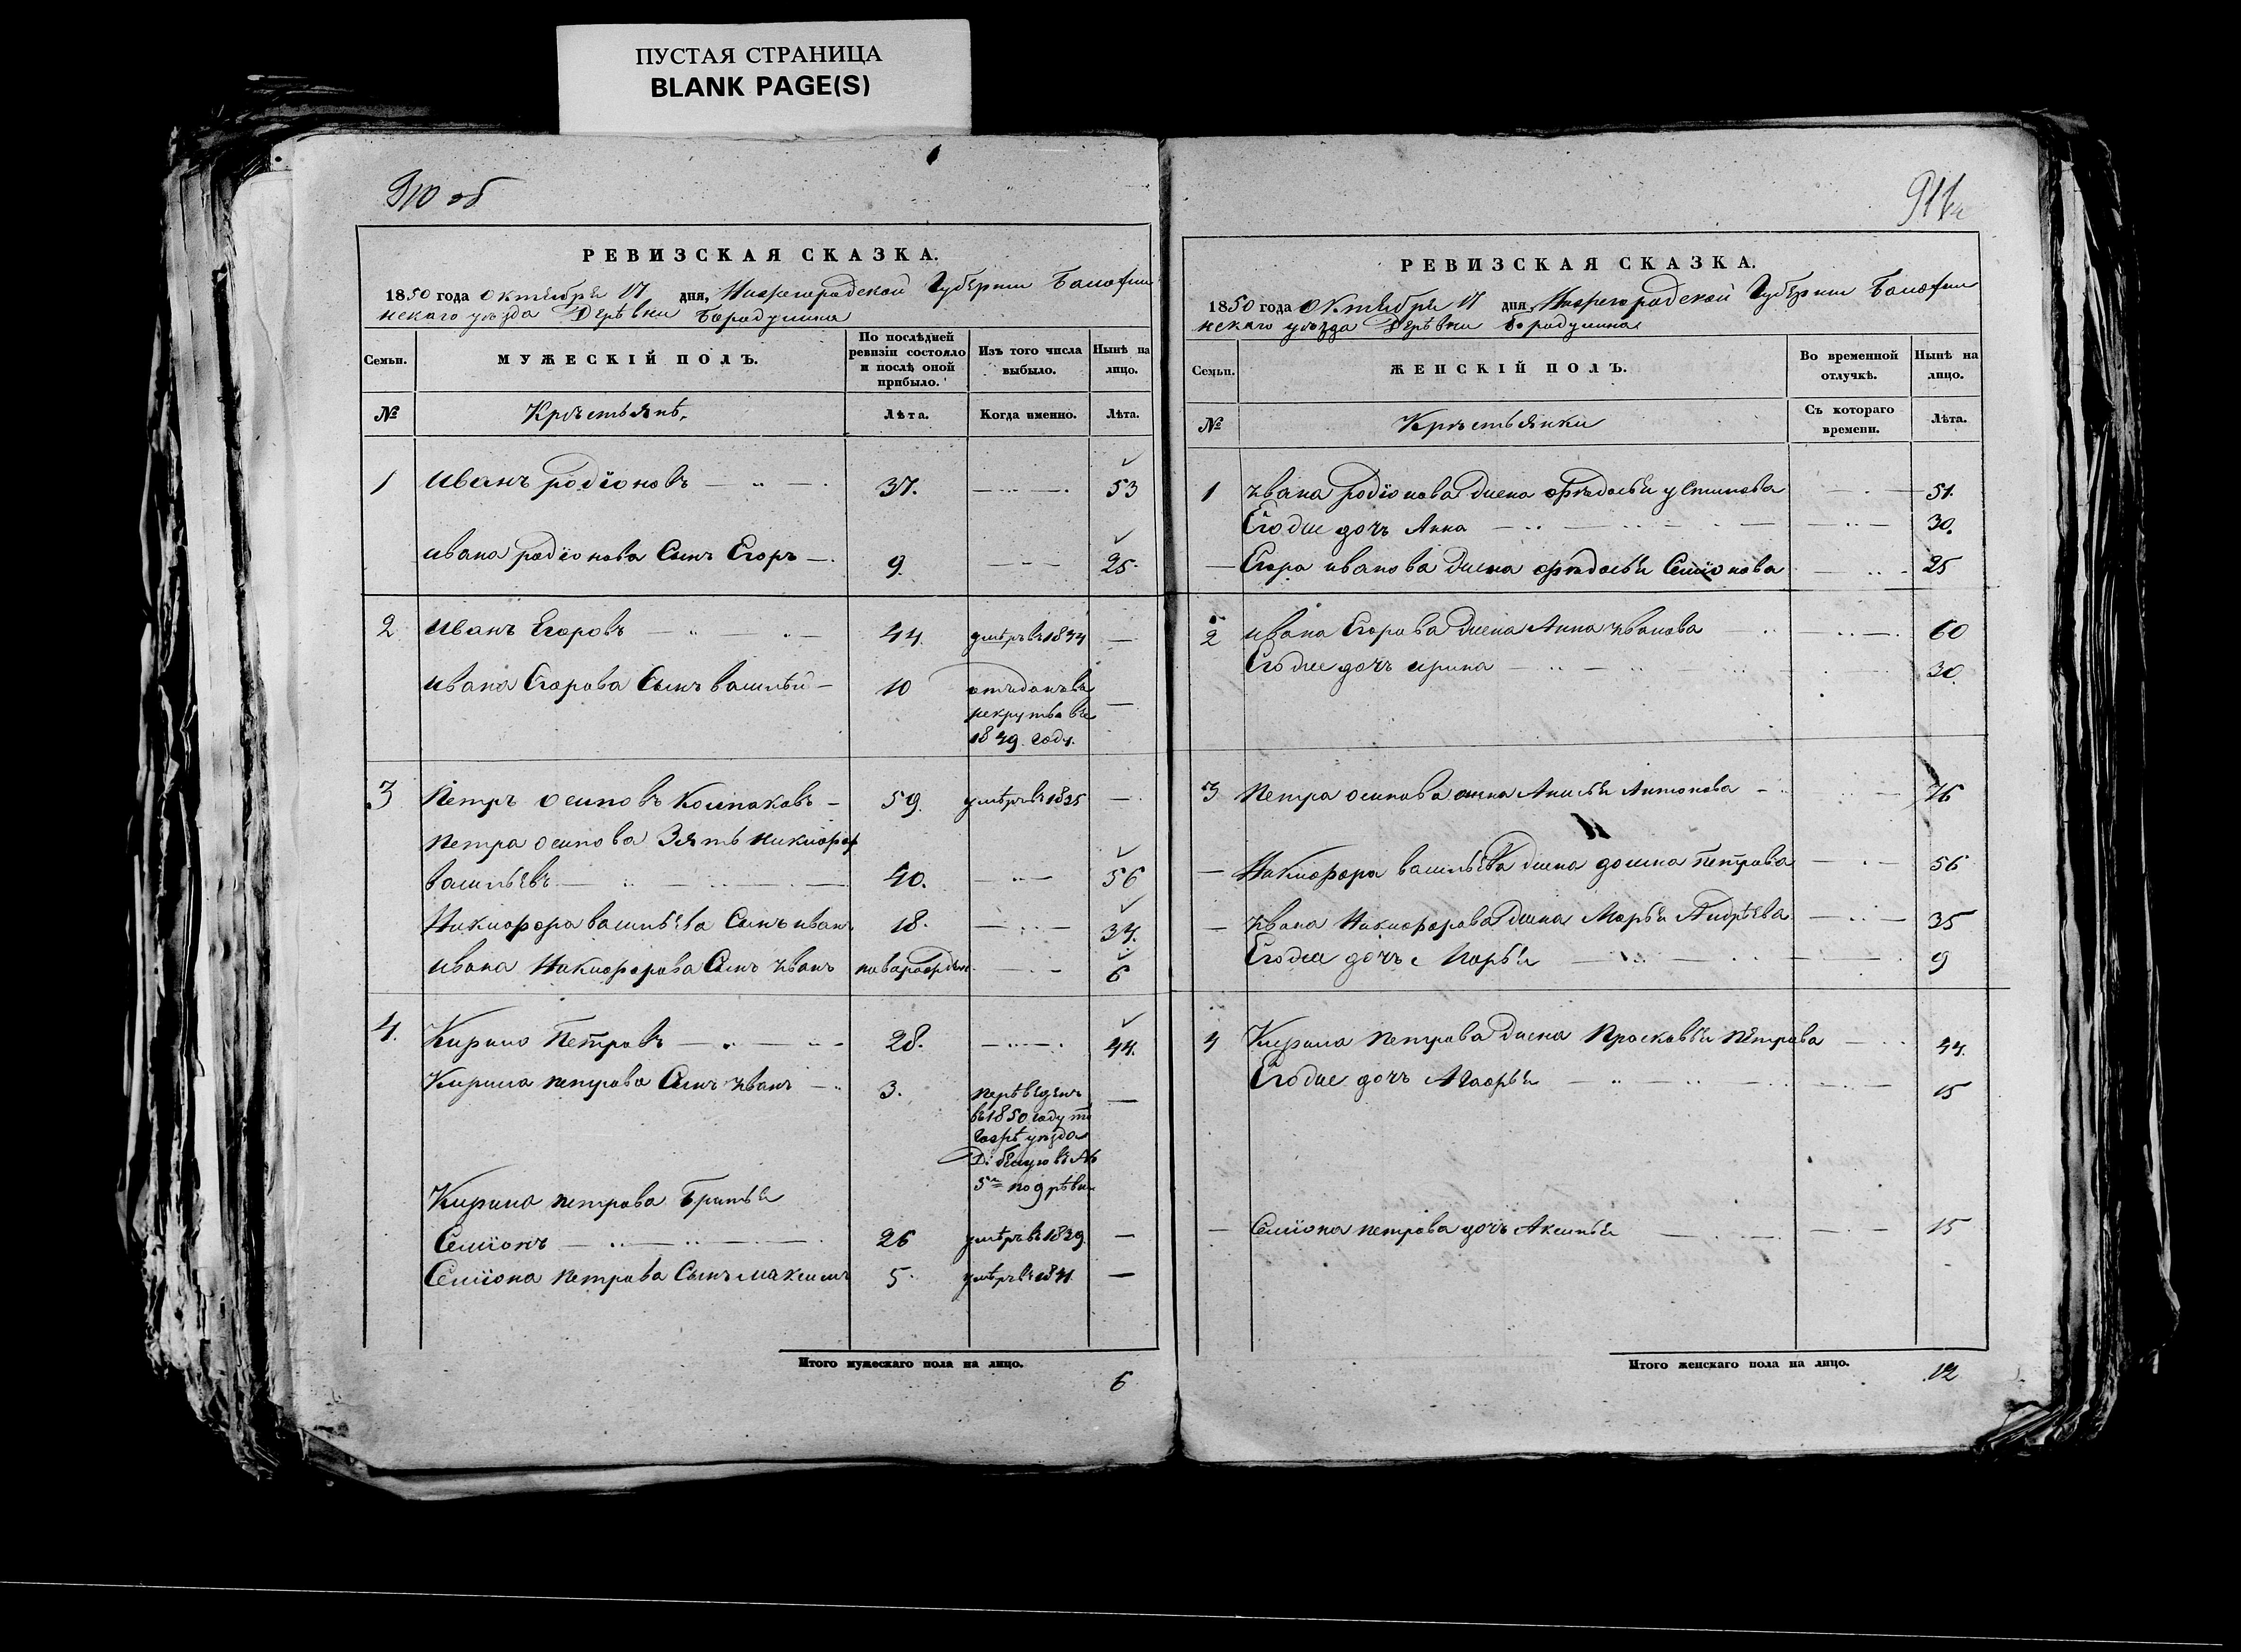 ПУСТАЯ СТРАНИЦА
BLANK PAGE(S)
910 об
РЕВИЗСКАЯ СКАЗКА.
1850 года октября 17 дня, Нижегородской Губернии Балахнинскаго уѣзда Дерѣвни Бородулина
Семьи. МУЖЕСКІЙ ПОЛЪ. По послѣдней ревизіи состояло и послѣ оной прибыло. Изъ того числа выбыло. Нынѣ на лицо.
№ Крѣстьянѣ. Лѣта. Когда именно. Лѣта.
1 Иванъ родіоновъ 37. 53
ивана родіонова Сынъ Егоръ 9. 25
2 Иванъ Егоровъ 44. умѣръ въ 1844
ивана Егорова Сынъ василѣй 10 отъданъ въ
рекруты въ
1849 году.
3 Петръ осиповъ Колпаковъ 59. умѣръ въ 1835
петра осипова Зять никифоръ
васильевъ 40. 56
Никифора васильева Сынъ иванъ 18. 34.
ивана Никифорова Сынъ иванъ новорожден. 6
4. Кирило Петровъ 28. 44.
Кирила петрова Сынъ иванъ 3. перѣведенъ
въ 1850 году то
гожѣ уѣзда
Кирила петрова братья
Семіонъ 26 умѣръ въ 1839
Семіона петрова Сынъ максимъ 5. умѣръ въ 1841
Итого мужескаго пола на лицо. 6
911
РЕВИЗСКАЯ СКАЗКА.
1850 года Октября 17 дня, Нижегородской Губернии Балахнинскаго уѣзда Дерѣвни бородулина
Семьи. ЖЕНСКІЙ ПОЛЪ. Во временной отлучкѣ. Нынѣ на лицо.
№ Крѣстьянки Съ котораго времени. Лѣта.
1 ивана родіонова жена фѣдосья устинова 51.
Егожѣ дочъ Анна 30.
Егора иванова жена фѣдосья Семіонова 25
2 ивана Егорова жена Анна иванова 60
Егожѣ дочъ ирина 30
3 петра осипова жена Анисья Антонова 76
Никифора васильева жена домна петрова 56
ивана Никифорова жена Марья Андрѣева 35
Егожѣ дочъ Марья 9
4 Кирила петрова жена Прасковья петрова 44.
Егожѣ дочъ Агафья 15
Семіона петрова дочъ Аксинья 15
Итого женскаго пола на лицо. 12